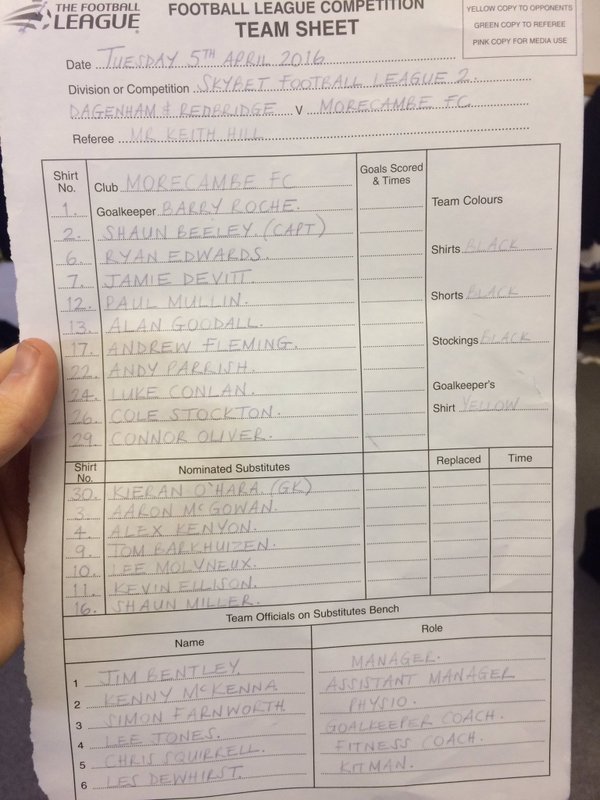 THE FOOTBALL
LEAGUE
FOOTBALL LEAGUE COMPETITION
TEAM SHEET
YELLOW COPY TO OPPONENTS
GREEN COPY TO REFEREE
PINK COPY FOR MEDIA USE
Date TUESDAY 5TH APRIL 2016
Division or Competition SKYBET FOOTBALL LEAGUE 2.
DAGENHAM & REDBRIDGE V MORECAMBE FC
Referee MR KEITH HILL
Shirt No. Club MORECAMBE FC Goals Scored & Times
Team Colours
1. Goalkeeper BARRY ROCHE.
2. SHAUN BEELEY. (CAPT)
6. RYAN EDWARDS. Shirts BLACK
7. JAMIE DEVITT.
12. PAUL MULLIN. Shorts BLACK
13. ALAN GOODALL.
17. ANDREW FLEMING. Stockings BLACK
22. ANDY PARRISH.
24. LUKE CONLAN. Goalkeeper's
26. COLE STOCKTON. Shirt YELLOW
29. CONNOR OLIVER.
Shirt No. Nominated Substitutes Replaced Time
30. KIERAN O'HARA (GK)
3. AARON McGOWAN.
4. ALEX KENYON.
9. TOM BARKHUIZEN.
10. LEE MOLYNEUX.
11. KEVIN ELLISON.
16. SHAUN MILLER.
Team Officials on Substitutes Bench
Name Role
1 JIM BENTLEY. MANAGER.
2 KENNY McKENNA ASSISTANT MANAGER
3 SIMON FARNWORTH PHYSIO.
4 LEE JONES. GOALKEEPER COACH.
5 CHRIS SQUIRRELL. FITNESS COACH.
6 LES DEWHIRST. KITMAN.